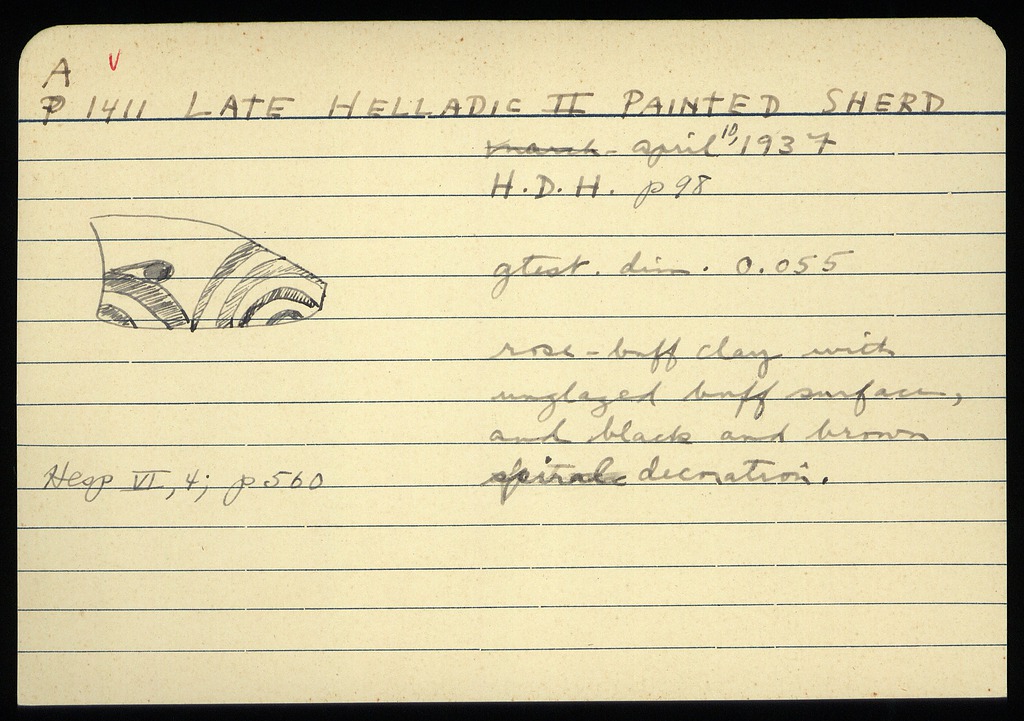 A V
P 1411 LATE HELLADIC II PAINTED SHERD
march - april 10, 1937
H.D.H. p 98
gtest. dim. 0.055
rose-buff clay with
unglazed buff surface,
and black and brown
spiral decoration.
Hesp VI, 4; p 560